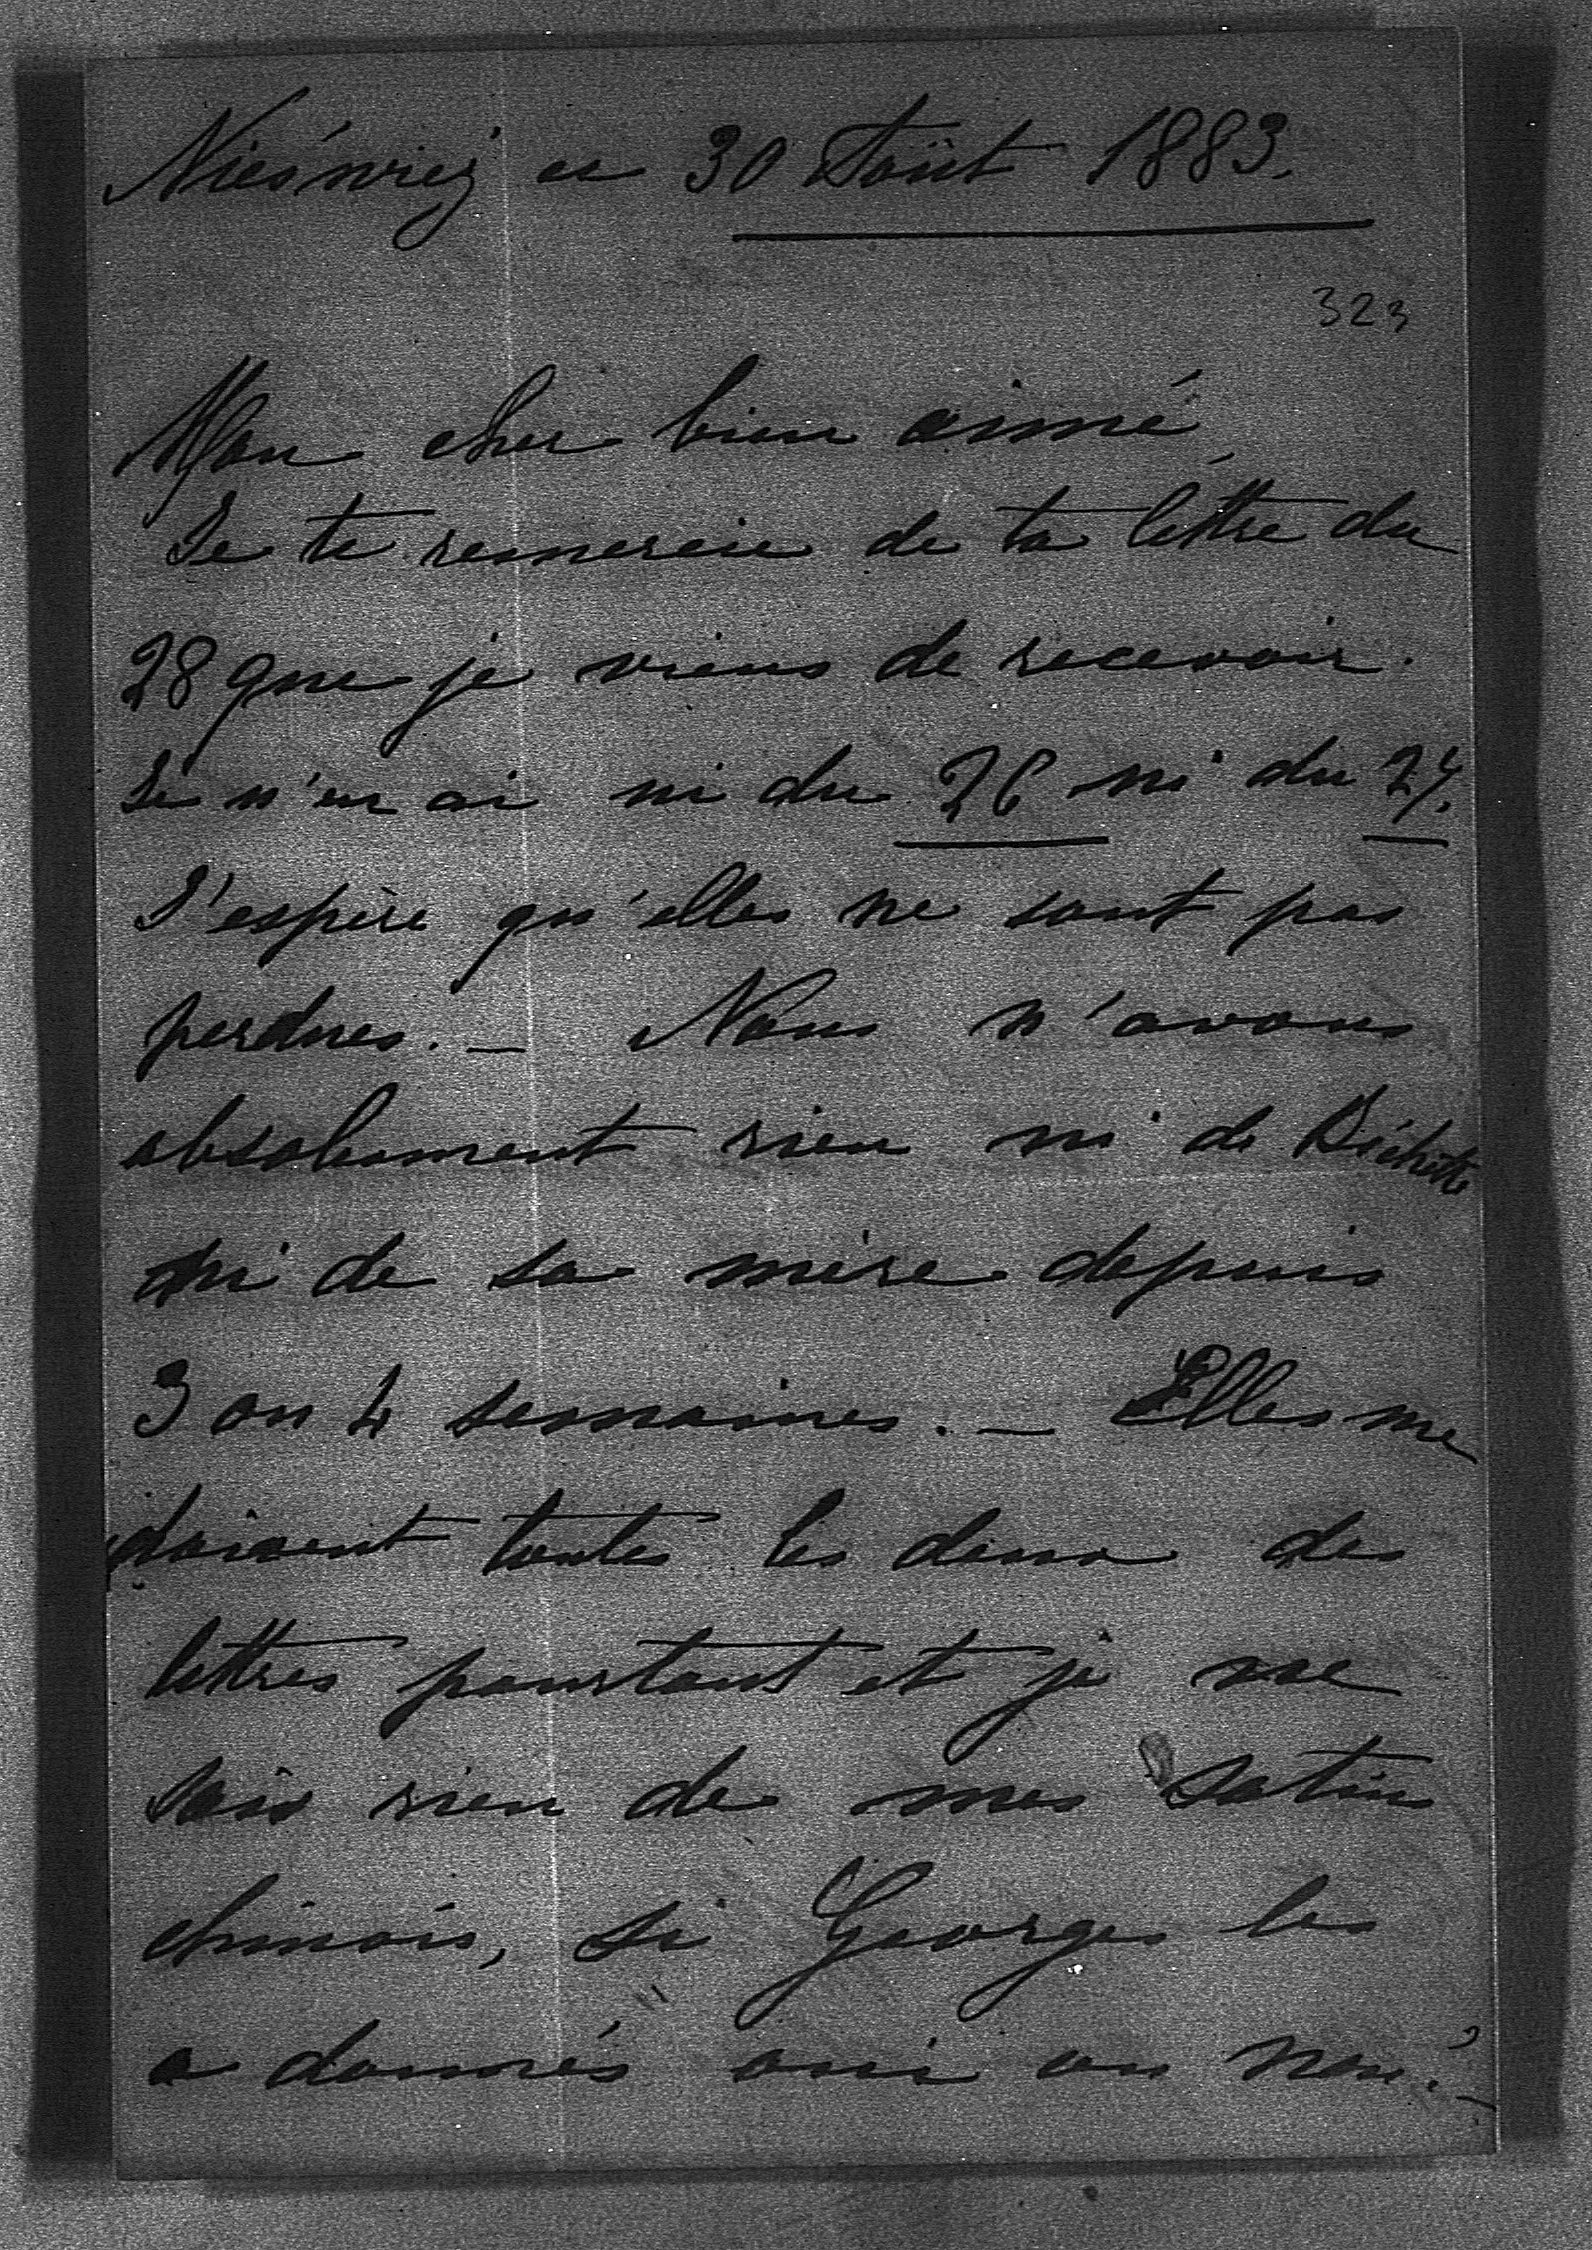 Nieśwież ce 30 Août 1883.
323
Mon cher bien aimé
Je te remercie de ta lettre du
28 que je viens de recevoir.
Je n'en ai ni du 26 ni du 27.
J'espère qu'elles ne sont pas
perdues. — Nous n'avons
absolument rien ni de Bichette
ni de sa mère depuis
3 ou 4 semaines. — Elles me
doivent toutes les deux des
lettres pourtant et je ne
sais rien de mes satins
chinois, si Georges les
a donnés oui ou non? —